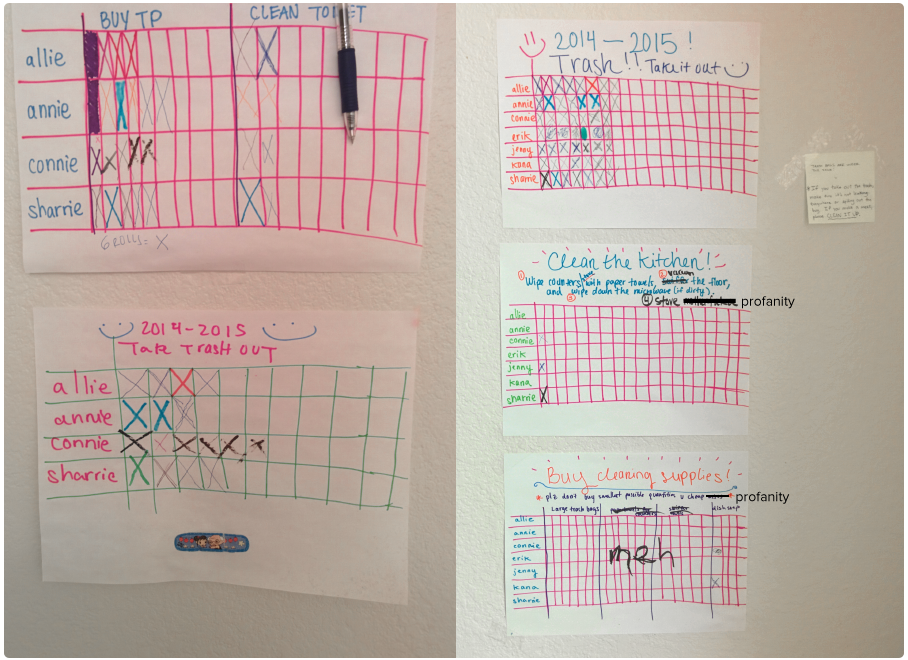 BUY TP
CLEAN TOILET
allie
annie
connie
sharrie
6 ROLLS = X
2014-2015
Take Trash OUT
allie
annie
connie
sharrie
2014-2015!
Trash!! Take it out
allie
annie
connie
erik
jenny
kana
sharrie
Clean the Kitchen!
① Wipe counters/stove with paper towels, ② vacuum the floor,
and ③ wipe down the microwave (if dirty).
④ stove
profanity
allie
annie
connie
erik
jenny
kana
sharrie
Buy cleaning supplies!
* plz don't buy smallest possible quantities u cheap *
profanity
Large trash bags
dish soap
allie
annie
connie
erik
jenny
kana
sharrie
meh
* If you take out the trash,
CLEAN IT UP.